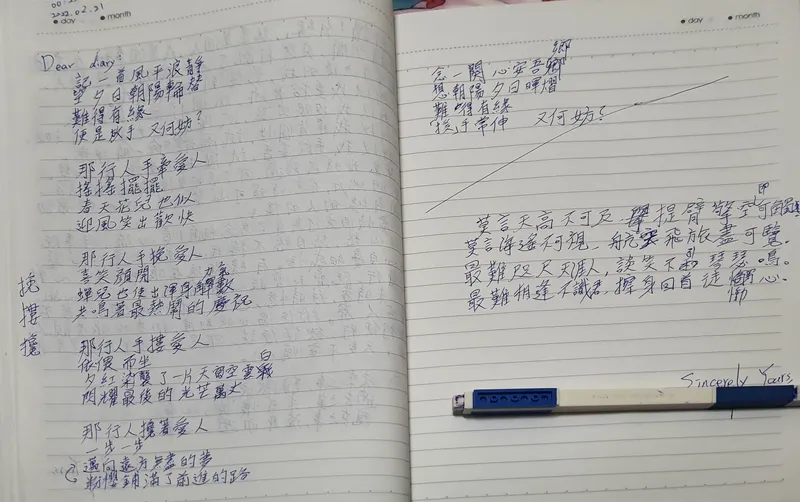 2022.02.21
day month
Dear diary:
記一首風平浪靜
望夕日朝陽輪替
難得有緣
便是放手 又何妨?
那行人手牽愛人
搖搖擺擺
春天花兒也似
迎風笑出歡快
那行人手挽愛人
喜笑顏開
蟬兒也使出渾身解數
共鳴著最熱鬧的慶記
挽
摟
攬
那行人手摟愛人
依偎而坐
夕紅染襲了一片天留空雲
白
閃耀最後的光芒萬丈
那行人攬著愛人
一步一步
邁向遠方無盡的夢
粉櫻鋪滿了前進的路
day month
鄉
念一闋 心安吾鄉
想朝陽夕日暉熠
難得有緣
手常伸 又何妨?
莫言天高不可及 提臂擎空可
莫言海遙不可視 飛旅盡可覽.
最難咫尺天涯人, 談笑不 瑟瑟鳴。
最難相逢不識君, 擦身回首徒 心.
慟
Sincerely Yours